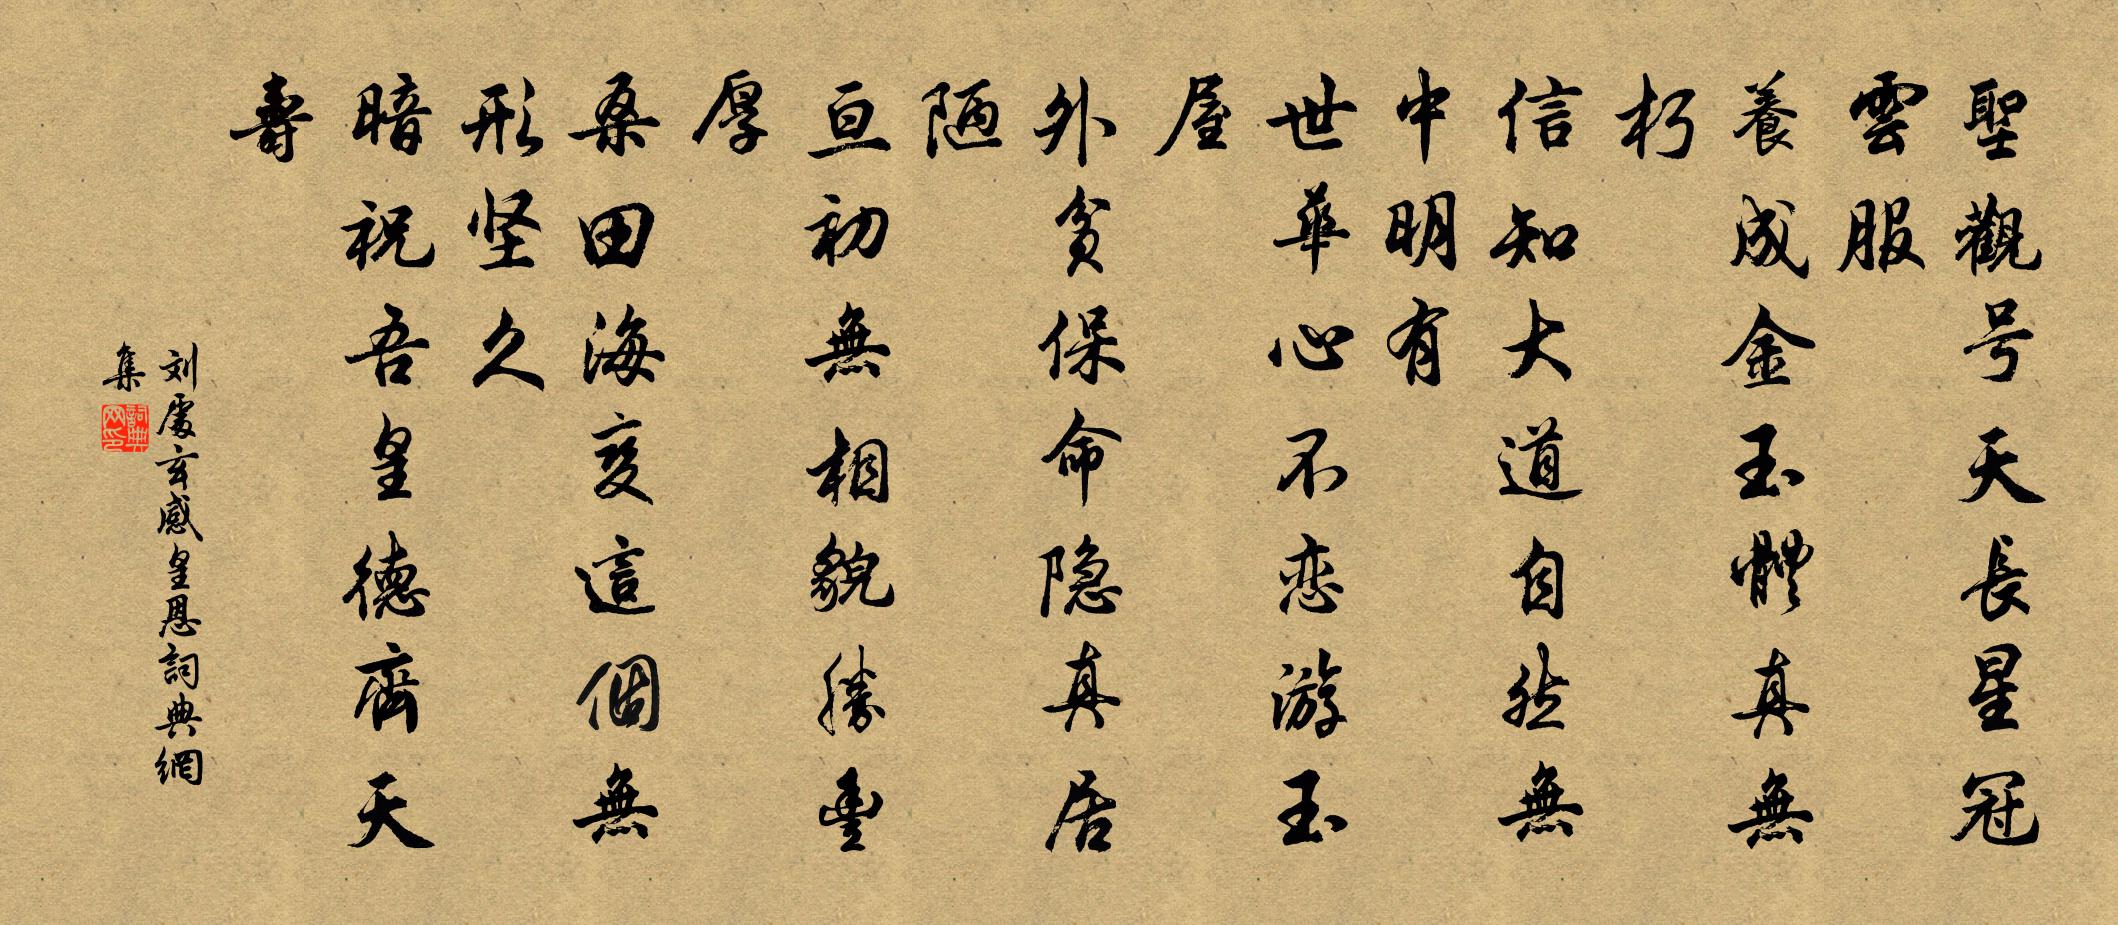 聖觀号天長星冠
雲服
養成金玉體真無
朽
信知大道自然無
中明有
世華心不恋游玉
屋
外貧保命隐真居
陋
亘初無相貌勝豊
厚
桑田海变這個無
形坚久
暗祝吾皇德齊天
壽
刘處玄感皇恩詞典網
集
詞典网印